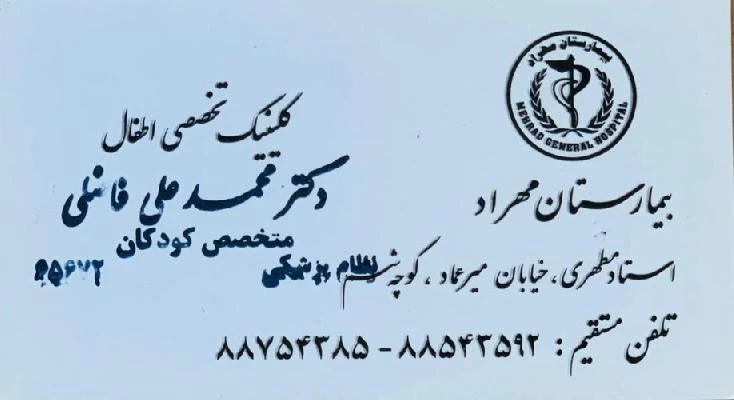 بیمارستان مهراد
MEHRAD GENERAL HOSPITAL
کلینیک تخصصی اطفال
دکتر محمد علی فاضلی
متخصص کودکان
نظام پزشکی
بیمارستان مهراد
استاد مطهری، خیابان میرعماد، کوچه
تلفن مستقیم: ۸۸۵۴۳۵۹۲ - ۸۸۷۵۴۳۸۵